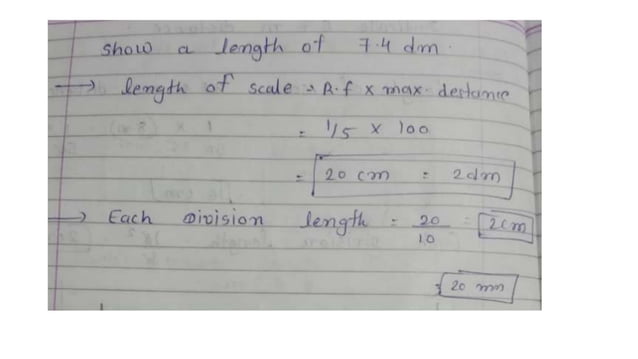 show a length of 7.4 dm.
→ length of scale = R.f x max. destance
= 1/5 x 100
= 20 cm = 2dm
→ Each Division length = 20/10 = 2cm
= 20 mm